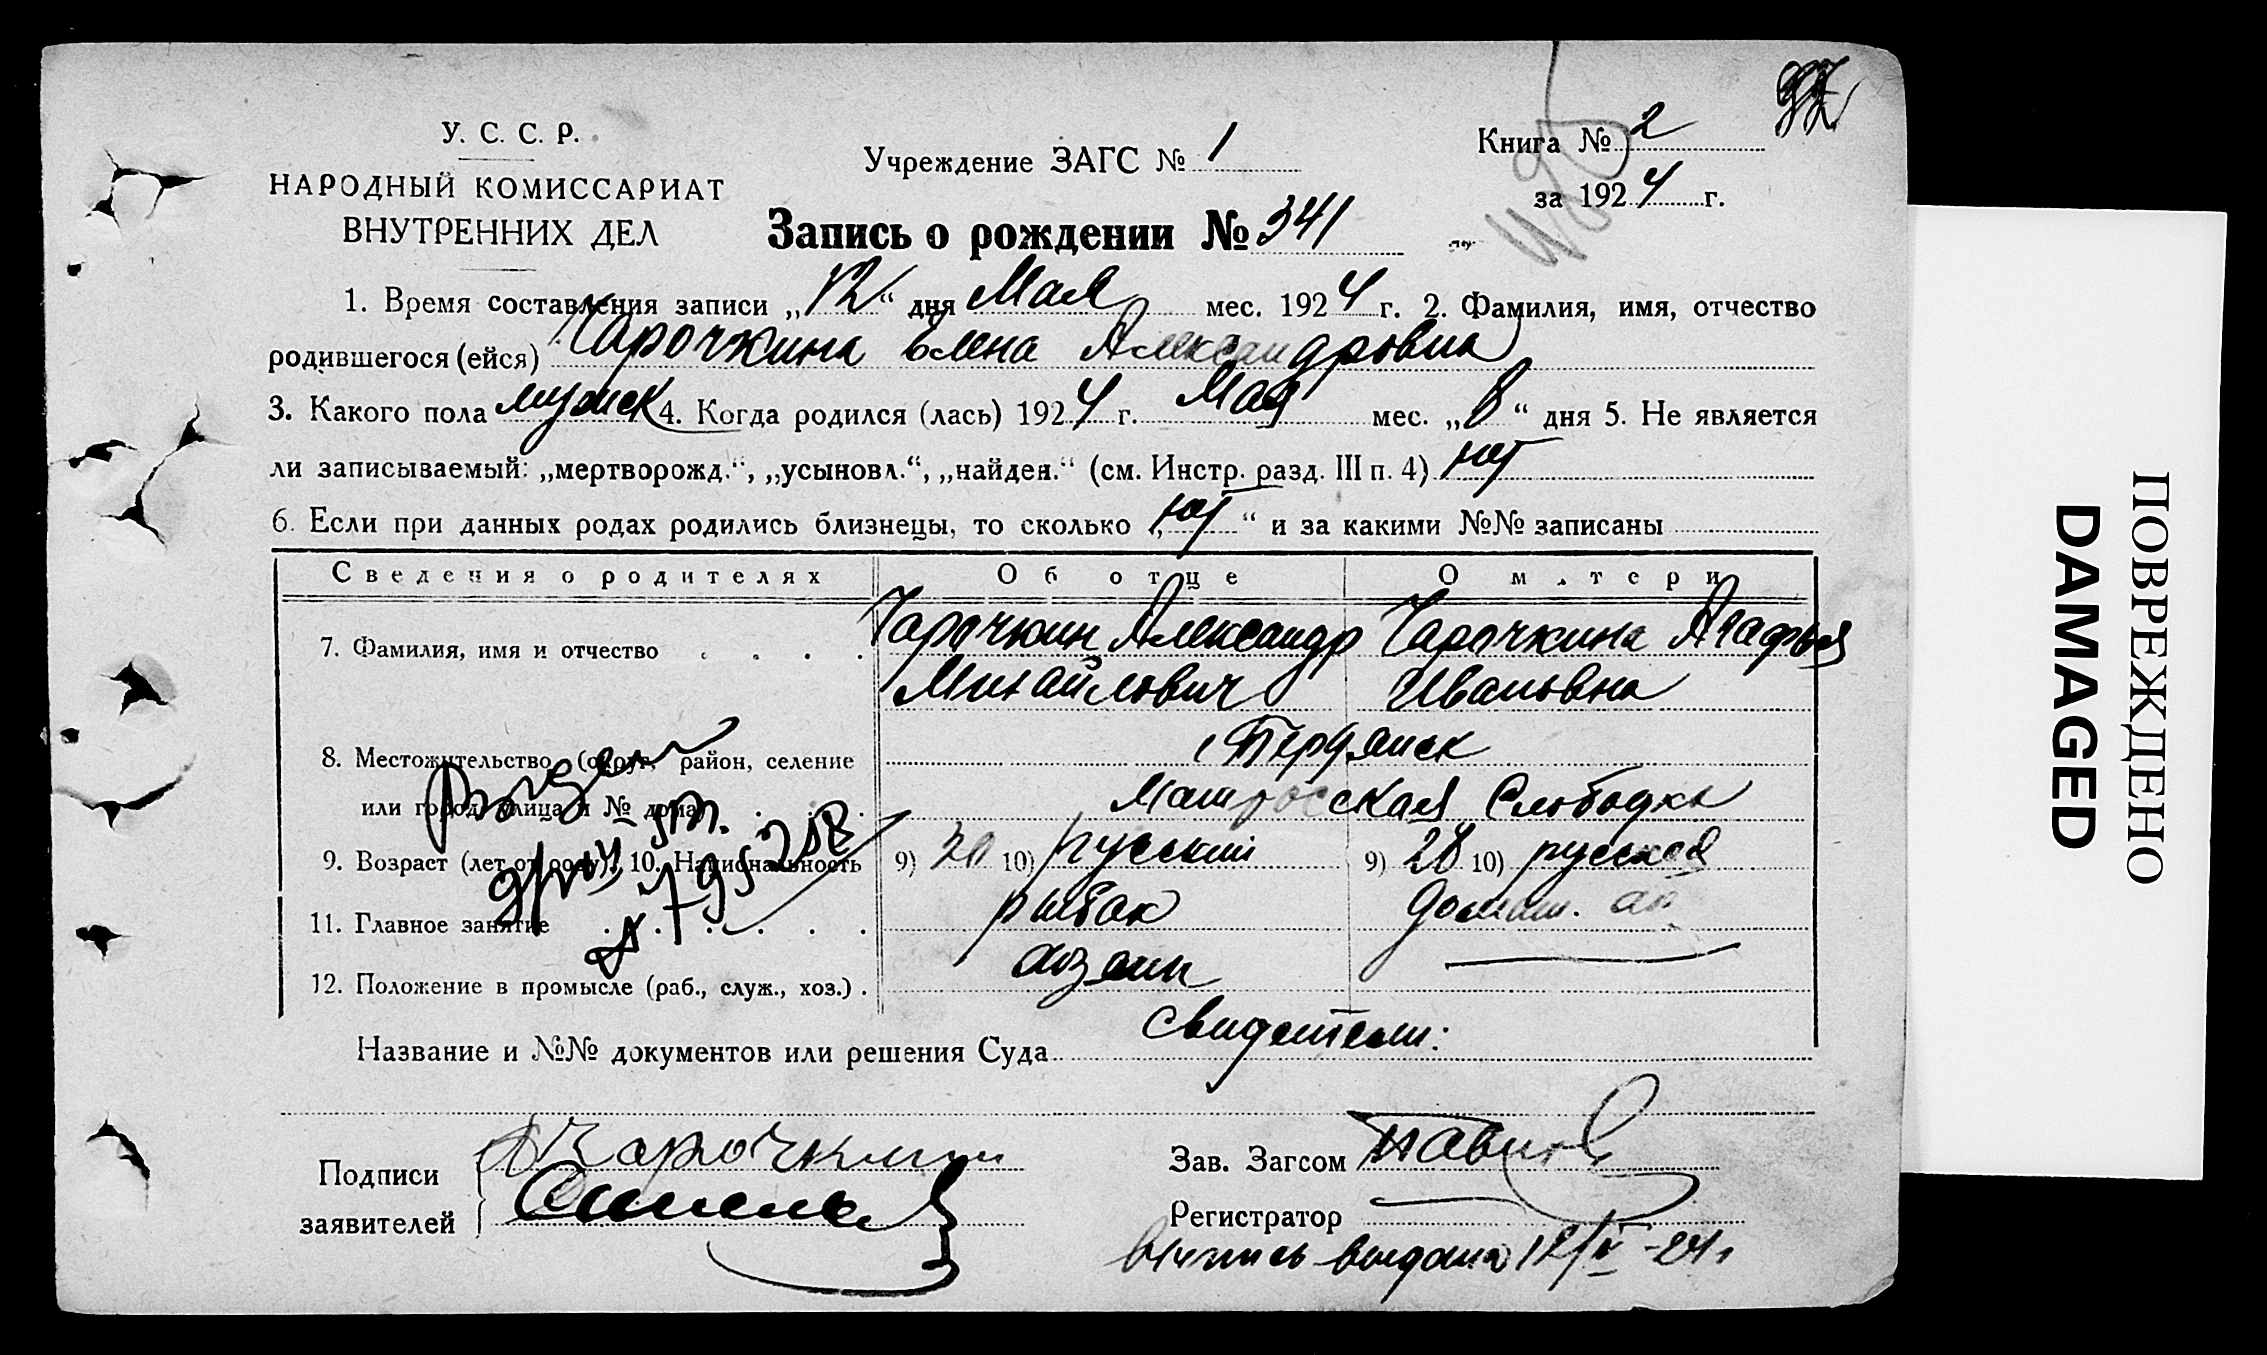 У. С. С. Р.
НАРОДНЫЙ КОМИССАРИАТ
ВНУТРЕННИХ ДЕЛ
Учреждение ЗАГС № 1
Книга № 2
за 1924 г.
Запись о рождении № 341
1. Время составления записи „12“ дня Мая мес. 1924 г. 2. Фамилия, имя, отчество
родившегося (ейся) Чарочкина Елена Александровна
3. Какого пола 4. Когда родился (лась) 1924 г. Мая мес. „8“ дня 5. Не является
ли записываемый: „мертворожд.“, „усыновл.“, „найден.“ (см. Инстр. разд. III п. 4) нет
6. Если при данных родах родились близнецы, то сколько „нет“ и за какими №№ записаны
Сведения о родителях Об отце О матери
7. Фамилия, имя и отчество Чарочкин Александр Михайлович Чарочкина Агафья Ивановна
8. Местожительство (округ, район, селение
или город, улица и № дома) г. Бердянск
Матросская Слободка
9. Возраст (лет от роду) 10. Национальность 9) 30 10) русский 9) 28 10) русская
11. Главное занятие рыбак домаш.
12. Положение в промысле (раб., служ., хоз.) хозяин
Название и №№ документов или решения Суда Свидетели:
Подписи
заявителей
А Чарочкин
Зав. Загсом
Регистратор
Выпись выдана 12/V-24 г
ПОВРЕЖДЕНО
DAMAGED